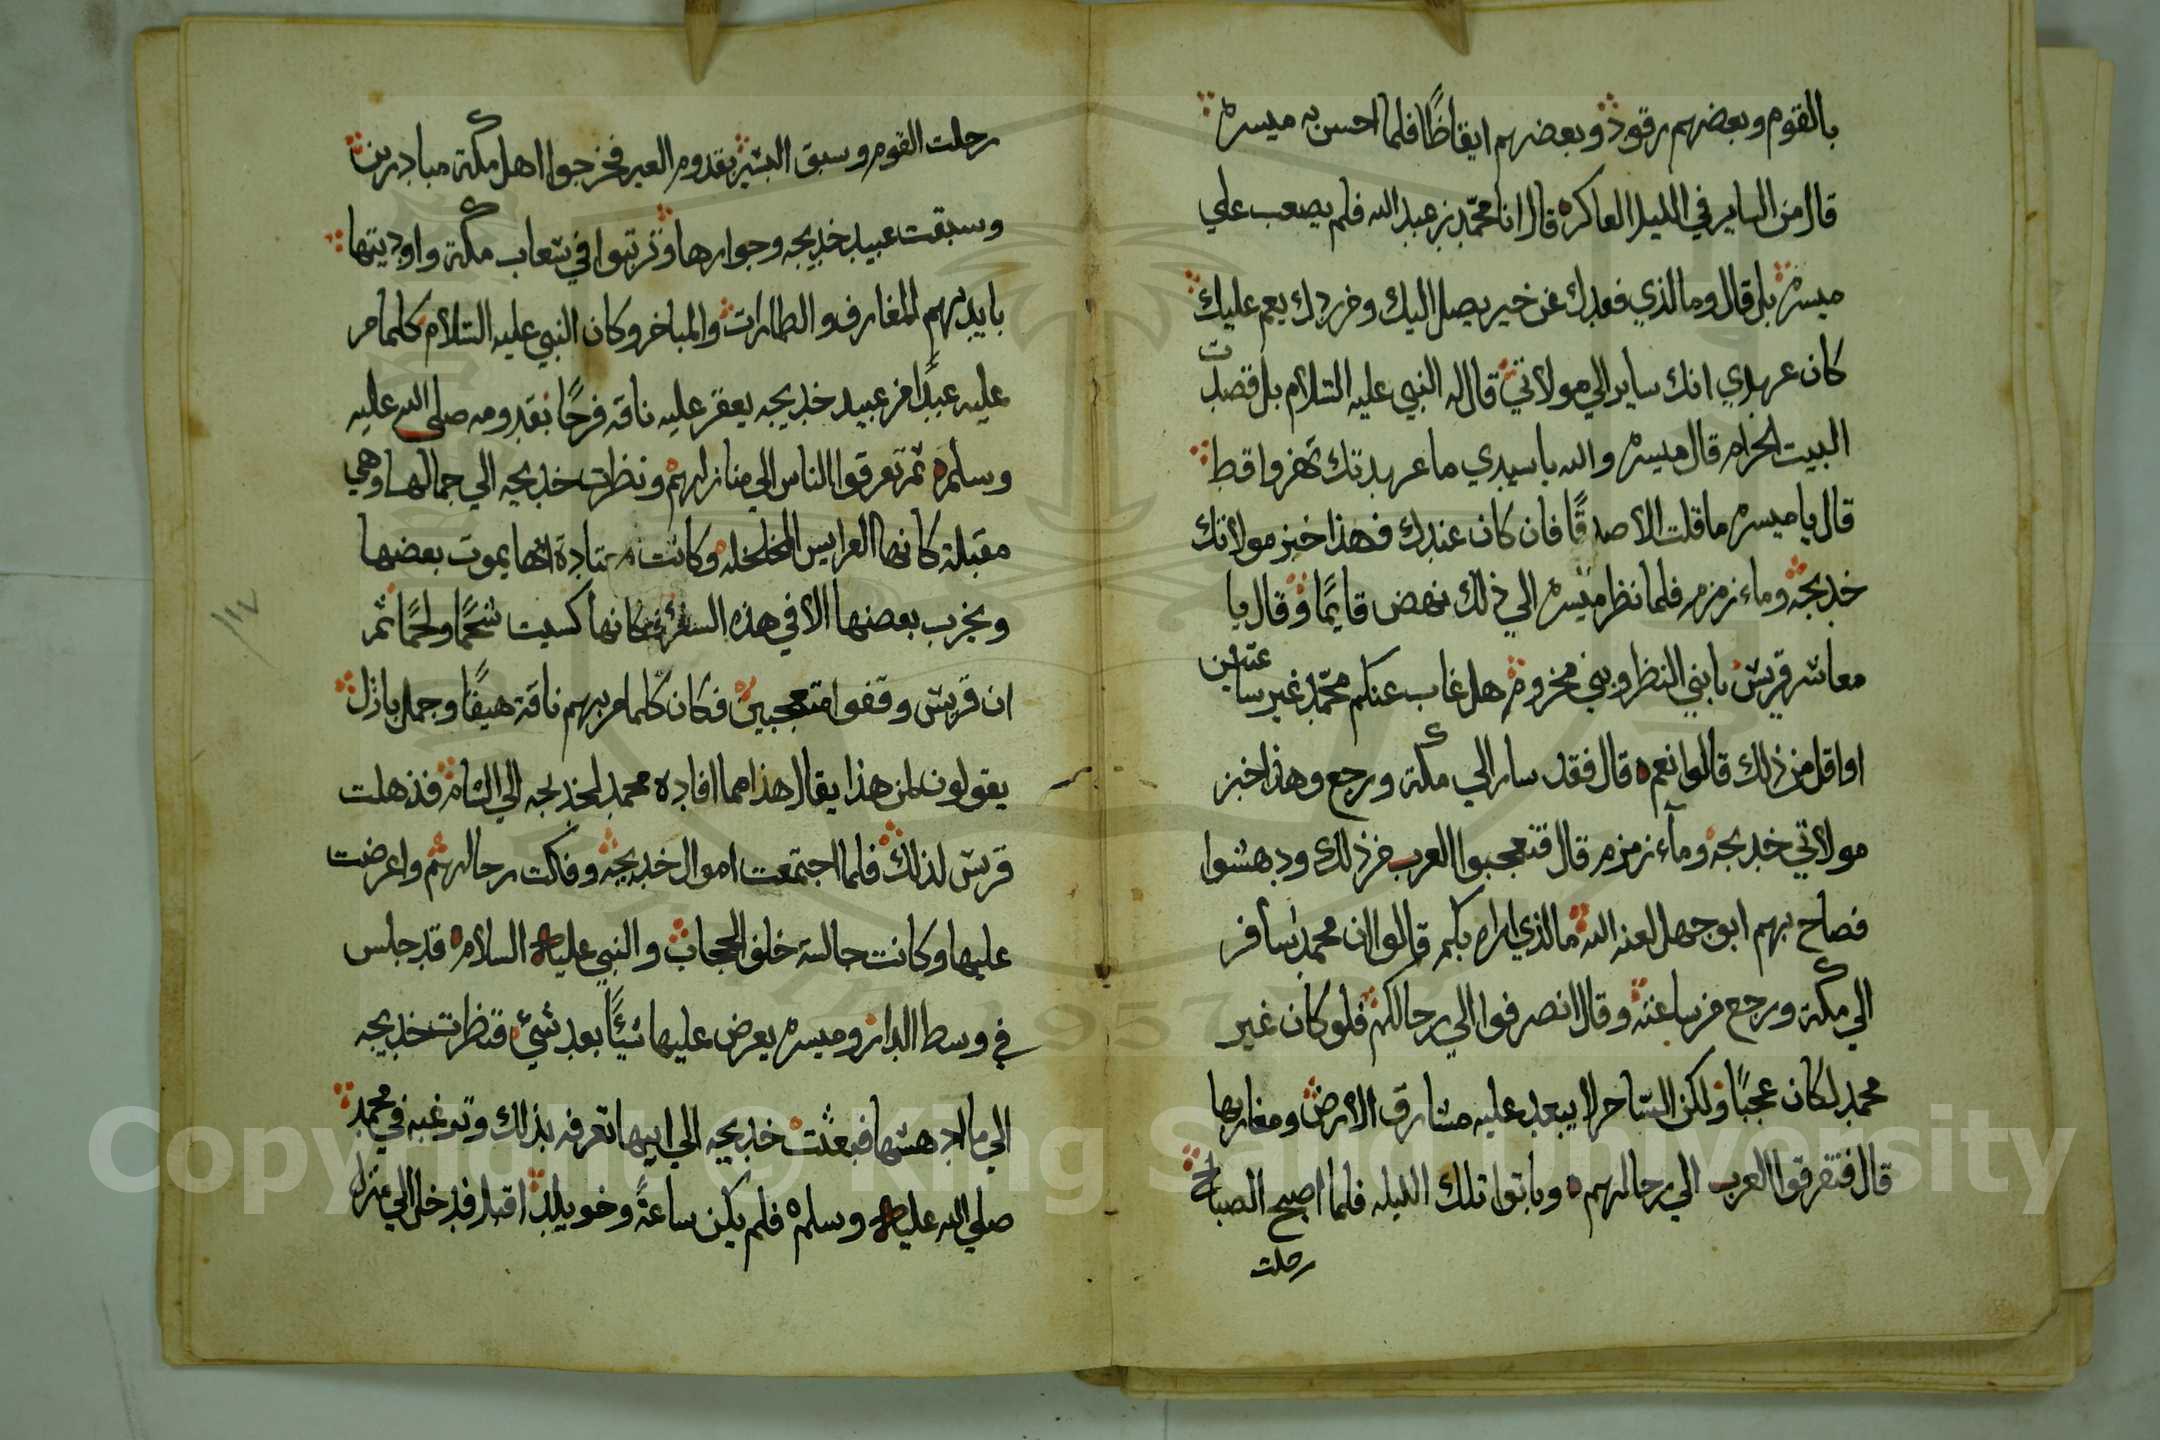 بالقوم وبعضهم رقود وبعضهم ايقاظا فلما احس به ميسره
قال من الساير في الليل العاكره قال انا محمد بن عبد الله فلم يصعب علي
ميسره بل قال وما الذي فعدك عن خير يصل اليك وفردك يعم عليك
كان عهدي انك ساير الي مولاتي قال له النبي عليه السلام بل قصدت
البيت الحرام قال ميسره والله يا سيدي ما عهدتك تهزوا قط
قال يا ميسره ما قلت الا صدقا فان كان عندك فهذا خبز مولاتك
خديجه وماء زمزم فلما نظر ميسره الي ذلك نهض قايما وقال يا
معاشر قريش يا بني النظر وبني مخزوم هل غاب عنكم محمد غير ساعتين
او اقل من ذلك قالوا نعم قال فقد سار الي مكة ورجع وهذا خبز
مولاتي خديجه وماء زمزم قال فتعجبوا العرب من ذلك ودهشوا
فصاح بهم ابو جهل لعنه الله ما الذي اراه بكم قالوا ان محمد سافر
الي مكة ورجع من ساعته وقال انصرفوا الي رحالكم فلو كان غير
محمد لكان عجبا ولكن الساحر لا يبعد عليه مشارق الارض ومغاربها
قال فتفرقوا العرب الي رحالهم وباتوا تلك الليله فلما اصبح الصباح
رحلت
رحلت القوم وسبق البشير بقدوم العير فخرجوا اهل مكة مبادرين
وسبقت عبيد خديجه وجوارها وترتبوا في شعاب مكة واوديتها
بايديهم المغارف والطارات والمباخر وكان النبي عليه السلام كلما مر
عليه عبدا من عبيد خديجه يعقر عليه ناقه فرحا بقدومه صلي الله عليه
وسلم ثم تعرقوا الناس الي منازلهم ونظرت خديجه الي جمالها وهي
مقبلة كانها العرايس المخلخله وكانت معتادة انها يموت بعضها
ويجرب بعضها الا في هذه السفره فكانها كسيت شحما ولحما ثم
ان قريش وقفوا متعجبين فكان كلما مر بهم ناقة هيفا وجمل باذل
يقولون لمن هذا يقال هذا مما افاده محمد لخديجه الي الشام فذهلت
قريش لذلك فلما اجتمعت اموال خديجه وفكت رحالهم واعرضت
عليها وكانت جالسة خلف الحجاب والنبي عليه السلام قد جلس
في وسط الدار وميسره يعرض عليها شيئا بعد شئ فنظرت خديجه
الي ما ادهشها فبعثت خديجه الي ابيها تعرفه بذلك وترغبه في محمد
صلي الله عليه وسلم فلم يكن ساعة وخويلد اقبل فدخل الي منزل
Copyright © King Saud University
1957